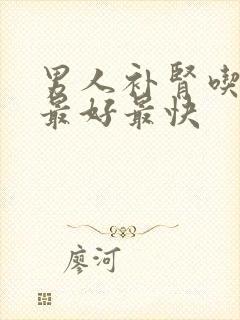 男人补肾喫
最好最快
廖河